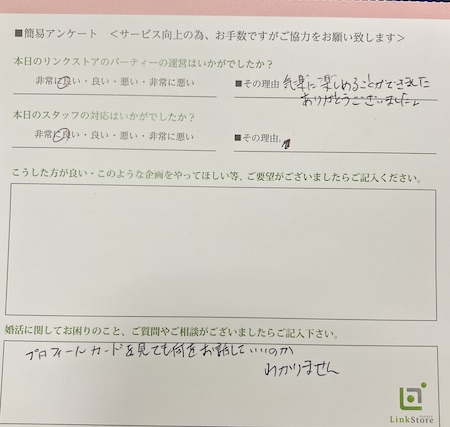 ■簡易アンケート ＜サービス向上の為、お手数ですがご協力をお願い致します＞
本日のリンクストアのパーティーの運営はいかがでしたか？
非常に良い・良い・悪い・非常に悪い ■その理由 気楽に楽しめることができました
ありがとうございました。
本日のスタッフの対応はいかがでしたか？
非常に良い・良い・悪い・非常に悪い ■その理由
こうした方が良い・このような企画をやってほしい等、ご要望がございましたらご記入ください。
婚活に関してお困りのこと、ご質問やご相談がございましたらご記入下さい。
プロフィールカードを見ても何をお話していいのか
わかりません
LinkStore